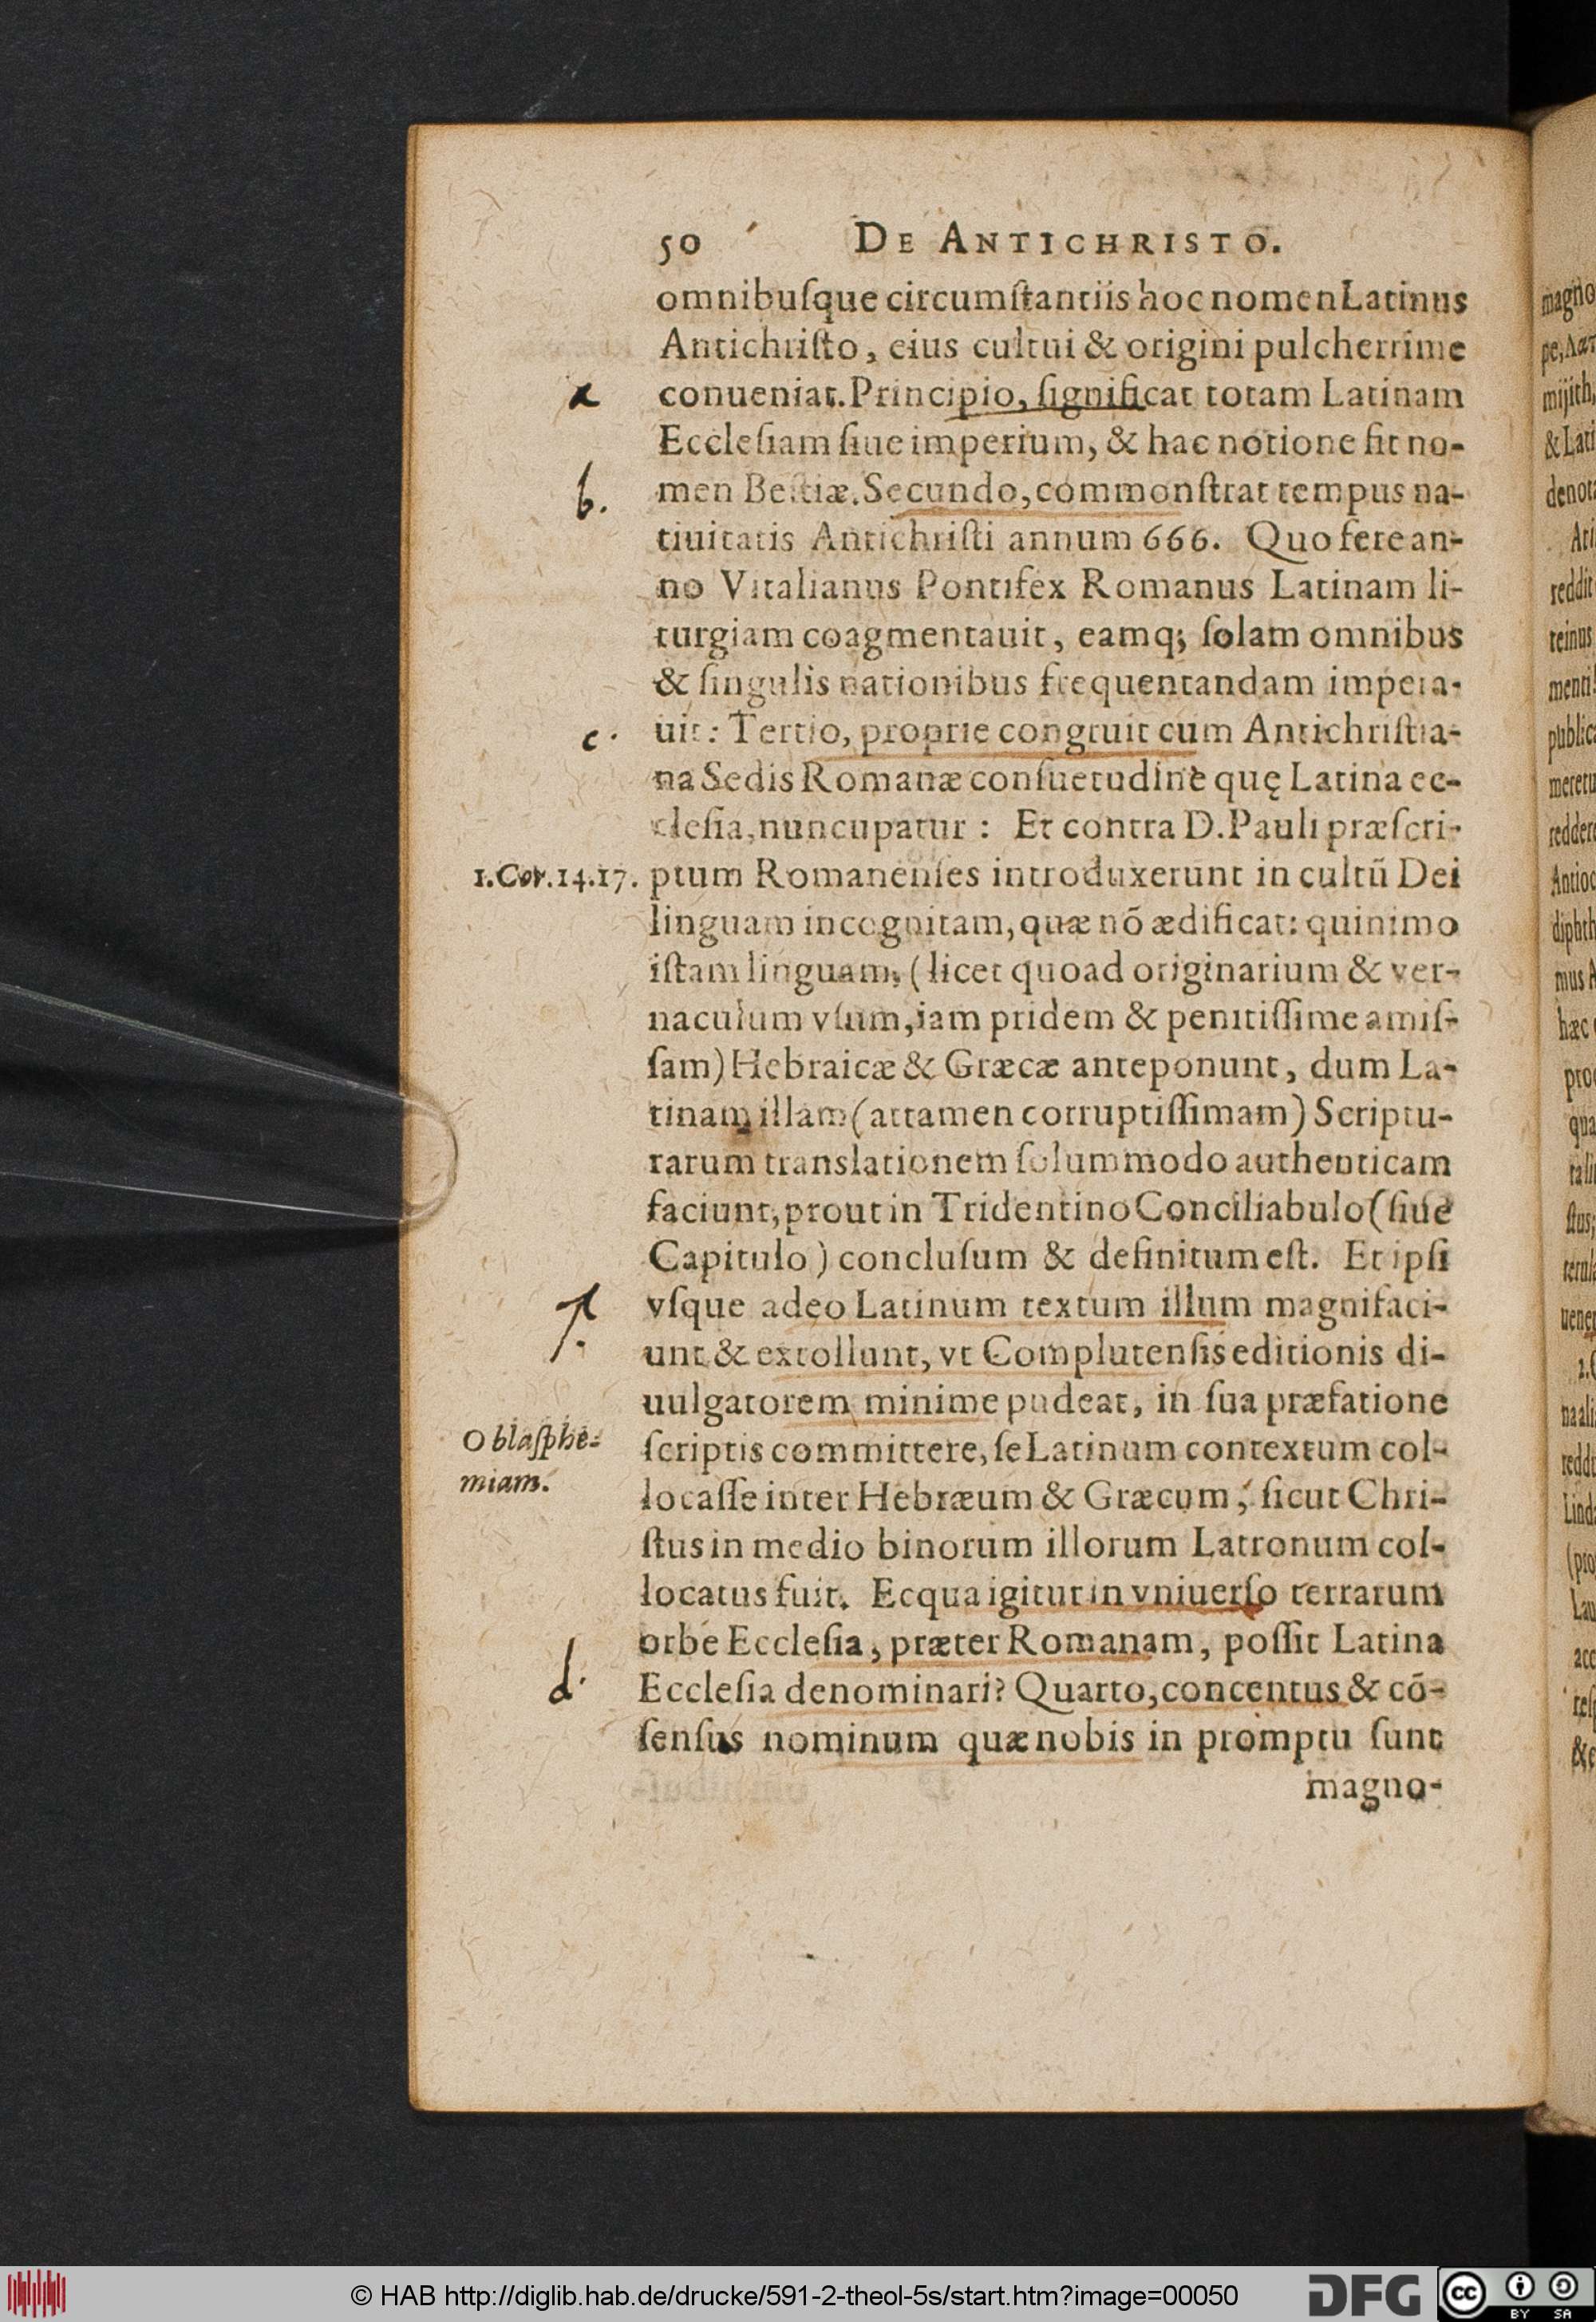 50 DE ANTICHRISTO.
omnibuſque circumſtantiis hoc nomen Latinus
Antichriſto, eius cultui & origini pulcherrime
a
conueniat. Principio, ſignificat totam Latinam
Eccleſiam ſiue imperium, & hac notione fit no-
b.
men Beſtiæ. Secundo, commonſtrat tempus na-
tiuitatis Antichriſti annum 666. Quo fere an-
no Vitalianus Pontifex Romanus Latinam li-
turgiam coagmentauit, eamq; ſolam omnibus
& ſingulis nationibus frequentandam impera-
c.
uit: Tertio, proprie congruit cum Antichriſtia-
na Sedis Romanæ conſuetudine quę Latina ec-
cleſia, nuncupatur: Et contra D. Pauli præſcri-
1. Cor. 14. 17.
ptum Romanenſes introduxerunt in cultū Dei
linguam incognitam, quæ nō ædificat: quinimo
iſtam linguam, (licet quoad originarium & ver-
naculum vſum, iam pridem & penitiſſime amiſ-
ſam) Hebraicæ & Græcæ anteponunt, dum La-
tinam illam (attamen corruptiſſimam) Scriptu-
rarum translationem ſolummodo authenticam
faciunt, prout in Tridentino Conciliabulo (ſiue
Capitulo) concluſum & definitum eſt. Et ipſi
vſque adeo Latinum textum illum magnifaci-
unt & extollunt, vt Complutenſis editionis di-
uulgatorem minime pudeat, in ſua præfatione
O blaſphe-
miam.
ſcriptis committere, ſe Latinum contextum col-
locaſſe inter Hebræum & Græcum, ſicut Chri-
ſtus in medio binorum illorum Latronum col-
locatus fuit. Ecqua igitur in vniuerſo terrarum
orbe Eccleſia, præter Romanam, poſſit Latina
d.
Eccleſia denominari? Quarto, concentus & cō-
ſenſus nominum quæ nobis in promptu ſunt
magno-
magno
mijith,
& Lati
denot
reddit
teinus
menti
public
meretu
Antioc
diphth
mus A
hæc
pro
qua
© HAB http://diglib.hab.de/drucke/591-2-theol-5s/start.htm?image=00050
DFG
cc
BY SA